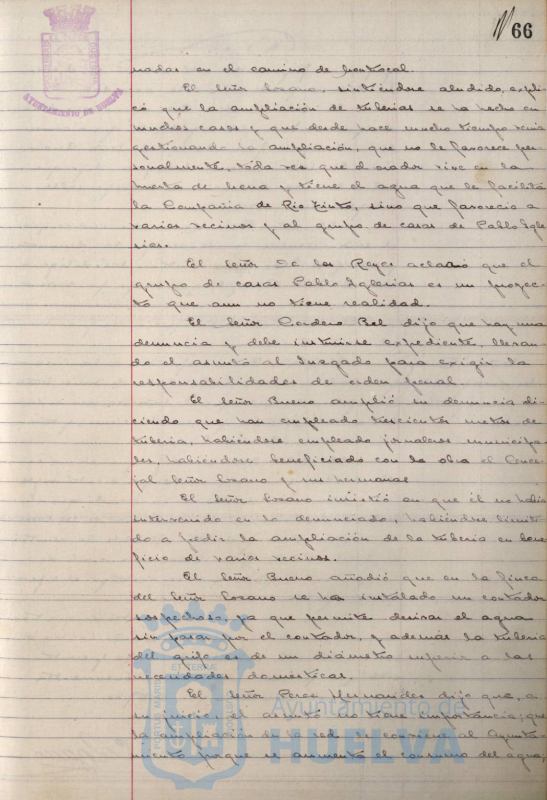 66
AYUNTAMIENTO DE HUELVA
nadas en el camino de
El Señor Lozano, sintiéndose aludido, expli-
có que la ampliación de tuberias se ha hecho en
muchos casos y que desde hace mucho tiempo venia
gestionando la ampliación, que no le favorece per-
sonalmente, toda vez que el orador vive en la
huerta de Mena y tiene el agua que le facilita
la Compañia de Rio Tinto, sino que favorecio a
varios vecinos y al grupo de casas de Pablo Igle-
sias.
El Señor De los Reyes aclaró que el
grupo de casas Pablo Iglesias es un proyec-
to que aun no tiene realidad.
El Señor Cordero Bel dijo que hay una
denuncia y debe instruirse expediente, llevan-
do el asunto al Juzgado para exigir la
responsabilidades de orden penal
El Señor Bueno amplió su denuncia di-
ciendo que han empleado trescientos metros de
tuberia, habiéndose empleado jornaleros municipa-
les, habiéndose beneficiado con la obra el Conce-
jal Señor Lozano y sus hermanos
El Señor Lozano insistió en que él no habia
intervenido en lo denunciado, habiéndose limita-
do a pedir la ampliación de la tuberia en bene-
ficio de varios vecinos.
El Señor Bueno añadió que en la finca
del Señor Lozano se ha instalado un contador
sospechoso, ya que permite desviar el agua
sin pasar por el contador, y además la tuberia
del grifo es de un diámetro superior a las
necesidades domésticas.
El Señor Perez Hernandez dijo que, a
su juicio, el asunto no tiene importancia; que
la ampliación de la red le conviene al Ayunta-
miento porque se aumenta el consumo del agua,
Ayuntamiento de
HUELVA